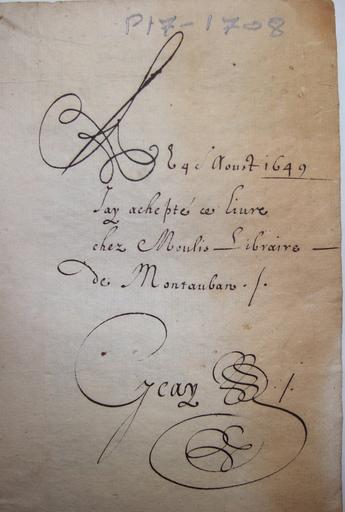 P17-1708
Le 4e Aoust 1649
Jay achepté ce livre
chez Moulis Libraire
de Montauban ./.
Geay ./.